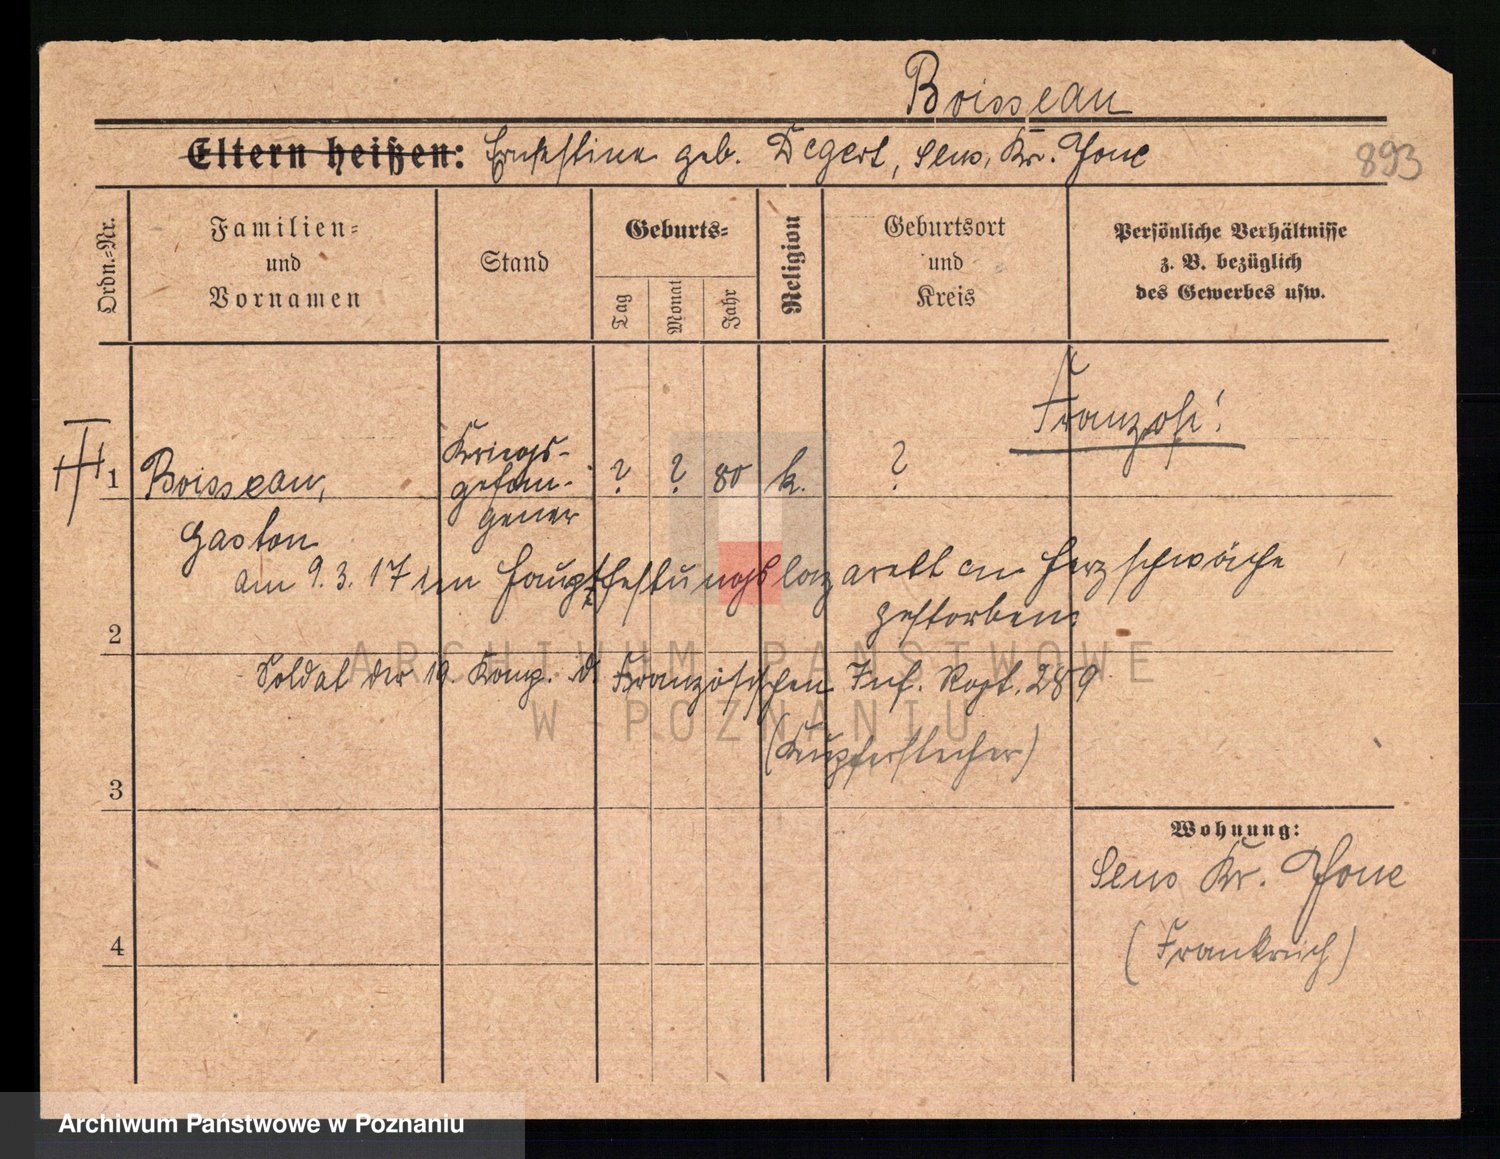 Boisseau
Eltern heißen: Ernestine geb. Degert, Sens, Kr. Yone
893
Ordn.-Nr.
Familien-
und
Vornamen
Stand
Geburts-
Tag
Monat
Jahr
Religion
Geburtsort
und
Kreis
Persönliche Verhältnisse
z. B. bezüglich
des Gewerbes usw.
Franzose!
1 Boisseau, Kriegs- ? ? 80 k. ?
gefan-
Gaston gener
am 9.3.17 im Hauptfestungslazarett an Herzschwäche
gestorben.
2
Soldat der 19. Komp. d. Französischen Inf. Regt. 289
(Kupferstecher)
3
Wohnung:
Sens Kr. Yone
(Frankreich)
4
ARCHIWUM PAŃSTWOWE
W POZNANIU
Archiwum Państwowe w Poznaniu